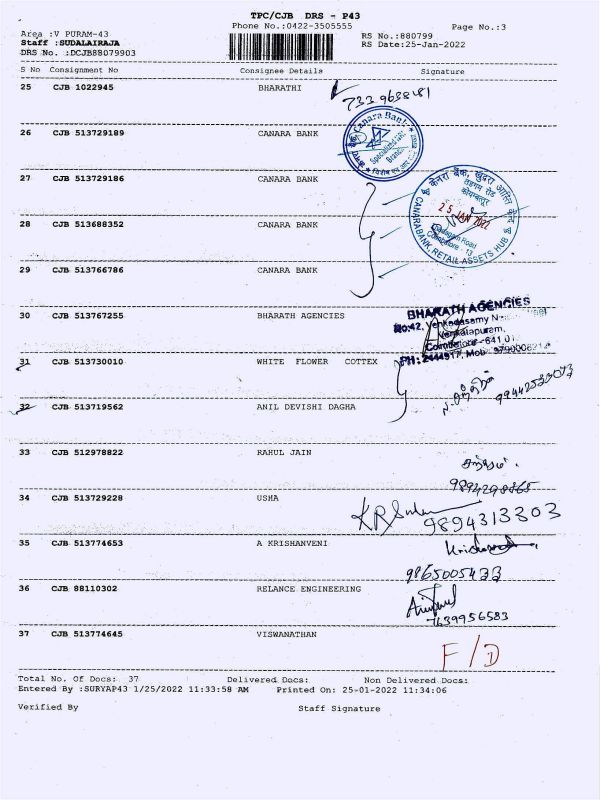 TPC/CJB DRS - P43
Phone No.:0422-3505555
Page No.:3
Area :V PURAM-43
Staff :SUDALAIRAJA
DRS No. :DCJB88079903
RS No.:880799
RS Date:25-Jan-2022
S No Consignment No Consignee Details Signature
25 CJB 1022945 BHARATHI
26 CJB 513729189 CANARA BANK
Canara Bank
27 CJB 513729186 CANARA BANK
25 JAN 2022
CANARA BANK, RETAIL ASSETS HUB
28 CJB 513688352 CANARA BANK
29 CJB 513766786 CANARA BANK
30 CJB 513767255 BHARATH AGENCIES
BHARATH AGENCIES
No:42, Venkadasamy
Venkatapuram,
Coimbatore - 641 0
PH: 2444917, Mob:
31 CJB 513730010 WHITE FLOWER COTTEX
32 CJB 513719562 ANIL DEVISHI DAGHA
33 CJB 512978822 RAHUL JAIN
34 CJB 513729228 USHA
9894313303
35 CJB 513774653 A KRISHANVENI
9865005433
36 CJB 88110302 RELANCE ENGINEERING
7639956583
37 CJB 513774645 VISWANATHAN
F/D
Total No. Of Docs: 37 Delivered Docs: Non Delivered Docs:
Entered By :SURYAP43 1/25/2022 11:33:58 AM Printed On: 25-01-2022 11:34:06
Verified By Staff Signature